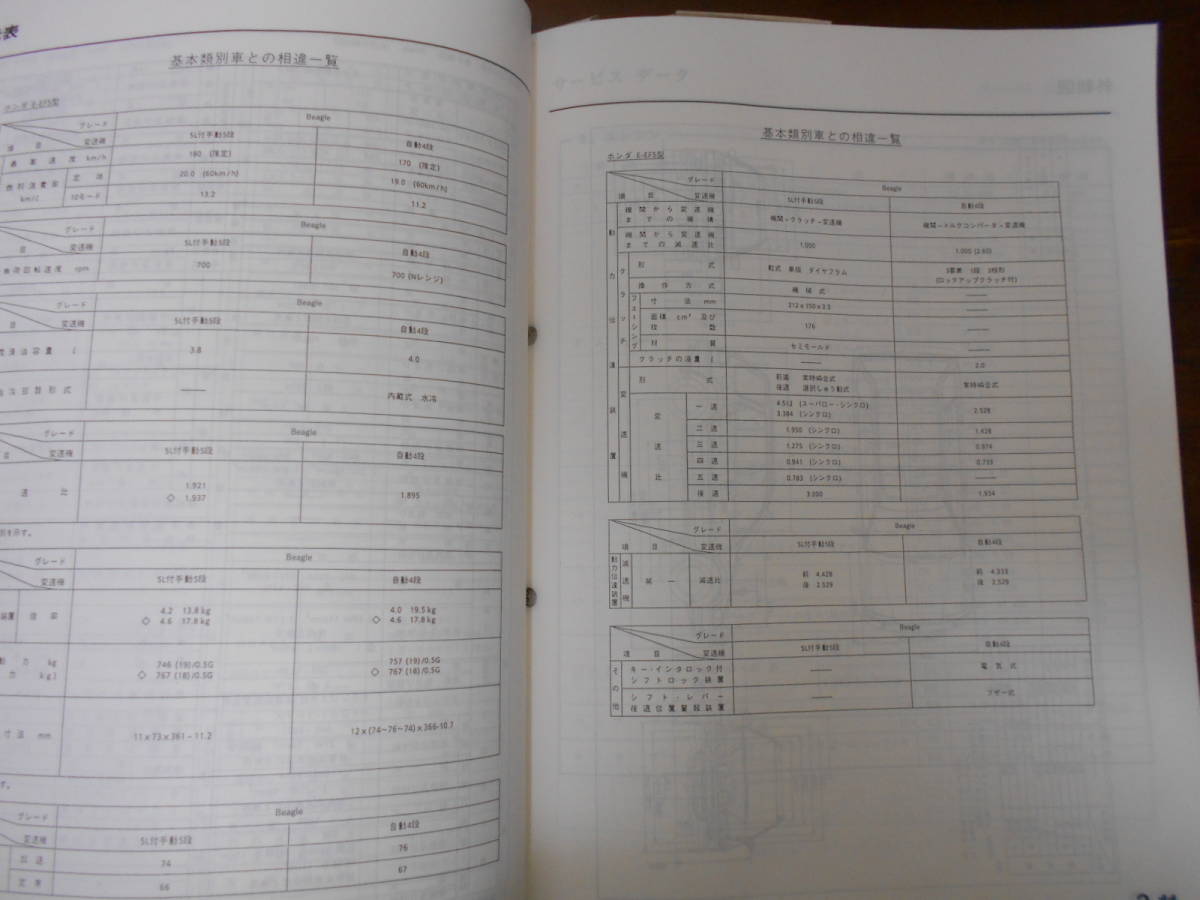 表
基本類別車との相違一覧
ホンダ E-EF5型
グレード
Beagle
項 目 変速機
SL付手動5段
自動4段
最高速度 km/h
180 (推定)
170 (推定)
定地
20.0 (60km/h)
19.0 (60km/h)
km/ℓ
10モード
13.2
11.2
グレード
Beagle
目 変速機
SL付手動5段
自動4段
無負荷回転速度 rpm
700
700 (Nレンジ)
グレード
Beagle
目 変速機
SL付手動5段
自動4段
潤滑油容量 ℓ
3.8
4.0
油冷却器形式
——
内蔵式 水冷
グレード
Beagle
目 変速機
SL付手動5段
自動4段
速 比
1.921
◇ 1.937
1.895
別を示す。
グレード
Beagle
変速機
SL付手動5段
自動4段
装置
4.2 13.8kg
◇ 4.6 17.8kg
4.0 19.5kg
◇ 4.6 17.8kg
動 力 kg
力 kg)
746 (19)/0.5G
◇ 767 (18)/0.5G
757 (19)/0.5G
◇ 767 (18)/0.5G
寸法 mm
11×73×361-11.2
12×(74~76~74)×366-10.7
す。
グレード
Beagle
変速機
SL付手動5段
自動4段
加速
74
76
定常
66
67
サービス データ
基本類別車との相違一覧
ホンダ E-EF5型
グレード
Beagle
項 目 変速機
SL付手動5段
自動4段
動力伝達装置
機関から変速機
までの機構
機関-クラッチ-変速機
機関-トルクコンバータ-変速機
機関から変速機
までの減速比
1.000
1.000 (2.60)
クラッチ
形 式
乾式 単板 ダイヤフラム
3要素 1段 2相形
(ロックアップクラッチ付)
操作方式
機械式
——
フェーシング
寸法 mm
212×150×3.5
——
面積 cm² 及び
枚 数
176
——
材 質
セミモールド
——
クラッチの油量 ℓ
——
2.0
変速機
形 式
前進 常時噛合式
後退 選択しゅう動式
常時噛合式
変速比
一速
(スーパーロー・シンクロ)
3.384 (シンクロ)
2.528
二速
1.950 (シンクロ)
1.428
三速
1.275 (シンクロ)
0.974
四速
0.941 (シンクロ)
0.733
五速
0.783 (シンクロ)
——
後退
3.000
1.954
グレード
Beagle
項 目 変速機
SL付手動5段
自動4段
動力伝達装置
減速機
第一
減速比
前 4.428
後 2.529
前 4.333
後 2.529
グレード
Beagle
項 目 変速機
SL付手動5段
自動4段
その他
キー・インタロック付
シフトロック装置
——
電気式
シフト・レバー
後退位置警報装置
——
ブザー式